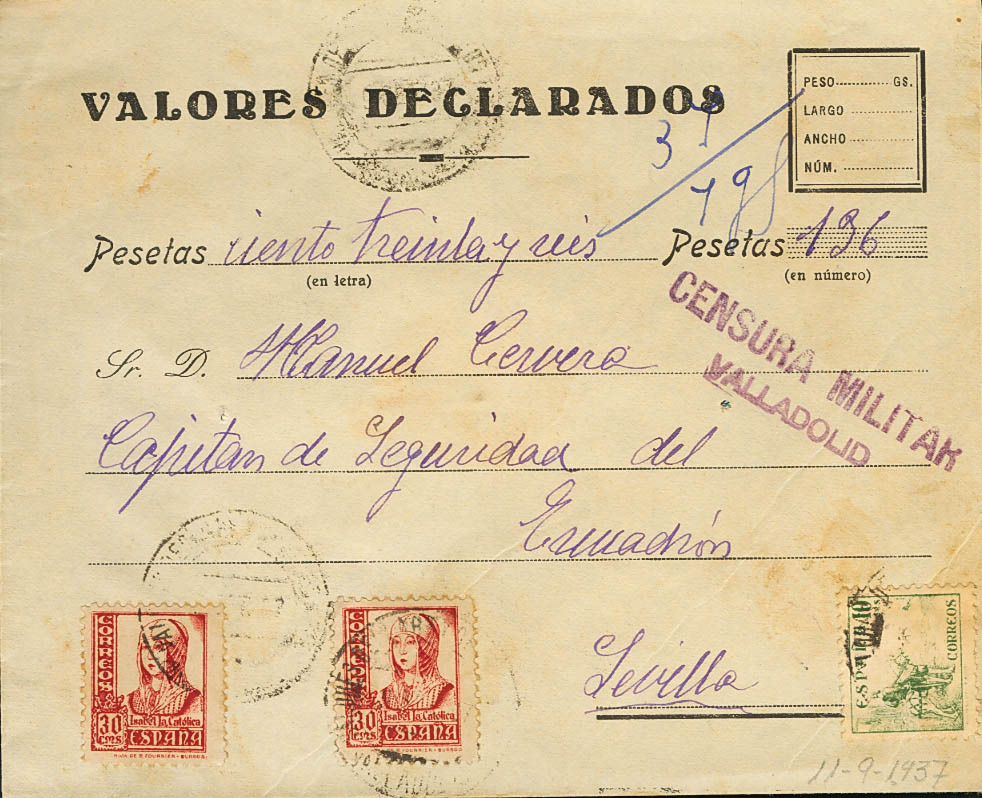 VALORES DECLARADOS
PESO GS.
LARGO
ANCHO
NÚM.
37
198
Pesetas ciento treinta y seis Pesetas 136
(en letra) (en número)
CENSURA MILITAR
VALLADOLID
Sr. D. Manuel Cervera
Capitan de Seguridad del
Escuadrón
Sevilla
CORREOS
30 cms
Isabel la Católica
ESPAÑA
HIJA DE B. FOURNIER - BURGOS
CORREOS
30 cms
Isabel la Católica
ESPAÑA
HIJA DE B. FOURNIER - BURGOS
ESPAÑA
10
CORREOS
11-9-1937